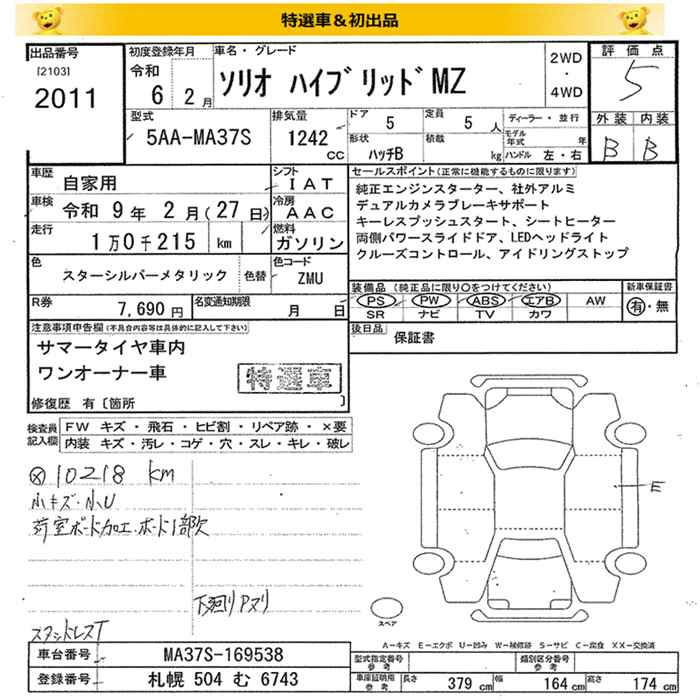 特選車＆初出品
出品番号
[2103]
2011
初度登録年月
令和
6 2月
車名・グレード
ソリオ ハイブリッドMZ
2WD
・
4WD
評価点
5
型式
5AA-MA37S
排気量
1242
cc
ドア
5
定員
5 人
形状
ハッチB
積載
kg
ディーラー・並行
モデル年式 年
ハンドル 左・右
外装 内装
B B
車歴
自家用
シフト
IAT
車検
令和 9年 2月(27日)
冷房
AAC
走行
1万0千215 km
燃料
ガソリン
色
スターシルバーメタリック
色替
色コード
ZMU
R券
7,690 円
名変通知期限
月 日
セールスポイント(正常に機能するものに限ります)
純正エンジンスターター、社外アルミ
デュアルカメラブレーキサポート
キーレスプッシュスタート、シートヒーター
両側パワースライドドア、LEDヘッドライト
クルーズコントロール、アイドリングストップ
装備品(純正品に限り○をつけてください)
PS PW ABS エアB AW
SR ナビ TV カワ
新車保証書
有・無
後日品
保証書
注意事項申告欄(不具合内容等は具体的に記入して下さい)
サマータイヤ車内
ワンオーナー車
特選車
修復歴 有〔箇所
検査員記入欄
FW キズ・飛石・ヒビ割・リペア跡・×要
内装 キズ・汚レ・コゲ・穴・スレ・キレ・破レ
10218 km
小キズ・小U
荷室ボード加工・ボード1部欠
下廻りPヌリ
スタッドレスT
E
スペア
A－キズ E－エクボ U－凹み W－補修跡 S－サビ C－腐食 XX－交換済
車台番号
MA37S-169538
登録番号
札幌 504 む 6743
型式指定番号
参考
類別区分番号
参考
車庫証明用
参考
長さ 379 cm 幅 164 cm 高さ 174 cm